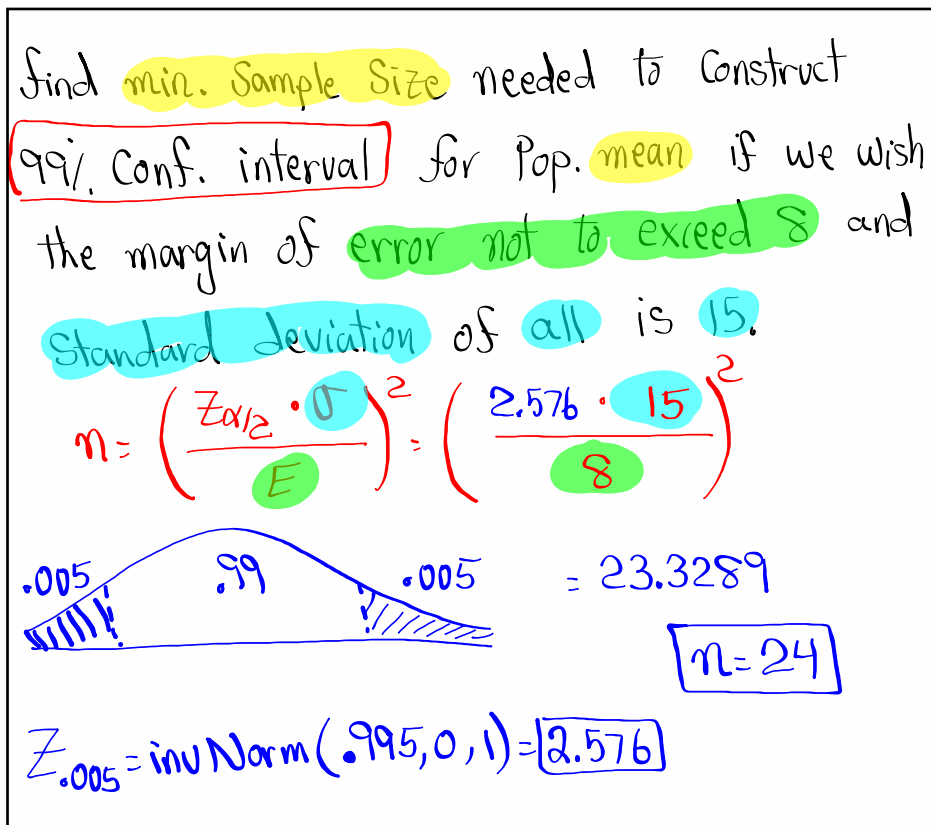 find min. Sample Size needed to Construct
99% Conf. interval for Pop. mean if we wish
the margin of error not to exceed 8 and
Standard deviation of all is 15.
n = (Zα/2 · σ / E)² = (2.576 · 15 / 8)²
.005 .99 .005 = 23.3289
n = 24
Z.005 = invNorm(.995, 0, 1) = 2.576